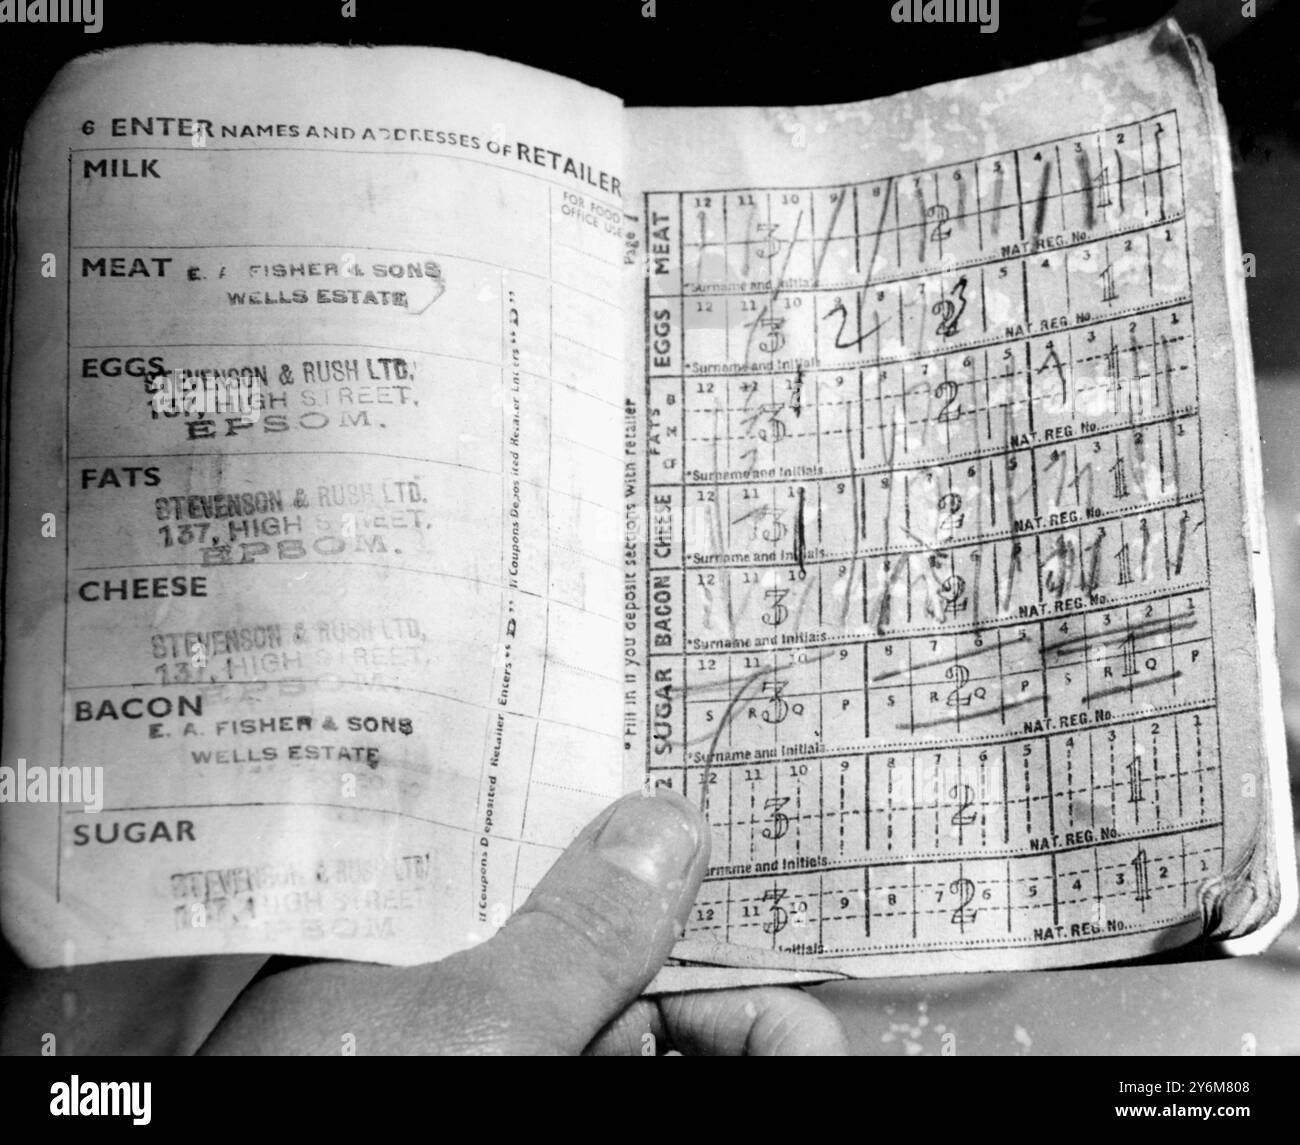 6 ENTER NAMES AND ADDRESSES OF RETAILER
MILK
FOR FOOD
OFFICE USE
MEAT E. A. FISHER & SONS
WELLS ESTATE
EGGS
STEVENSON & RUSH LTD,
137, HIGH STREET,
EPSOM.
FATS
STEVENSON & RUSH LTD.
137, HIGH STREET,
EPSOM.
CHEESE
STEVENSON & RUSH LTD,
137, HIGH STREET,
EPSOM.
BACON
E. A. FISHER & SONS
WELLS ESTATE
SUGAR
STEVENSON & RUSH LTD
137, HIGH STREET
EPSOM
If Coupons Deposited Retailer Enters "D"
If Coupons Deposited Retailer Enters "D"
Page 7
*Fill in if you deposit sections with retailer
MEAT
12 11 10 9 8 7 6 5 4 3 2 1
3 2 1
*Surname and Initials NAT. REG. No.
EGGS
12 11 10 9 8 7 6 5 4 3 2 1
3 2 1
*Surname and Initials NAT. REG. No.
FATS
12 11 9 7 6 5 4 3 2 1
3 2 1
*Surname and Initials NAT. REG. No.
CHEESE
12 11 10 9 8 7 6 5 4 3 2 1
3 2 1
*Surname and Initials NAT. REG. No.
BACON
12 11 10 9 8 7 6 5 4 3 2 1
3 2 1
*Surname and Initials NAT. REG. No.
SUGAR
12 11 10 9 8 7 6 5 4 3 2 1
3 2 1
S R Q P S R Q P S R Q P
*Surname and Initials NAT. REG. No.
2
12 11 10 9 8 7 6 5 4 3 2 1
3 2 1
Surname and Initials NAT. REG. No.
12 11 10 9 8 7 6 5 4 3 2 1
3 2 1
Initials NAT. REG. No.
alamy
Image ID: 2Y6M808
www.alamy.com